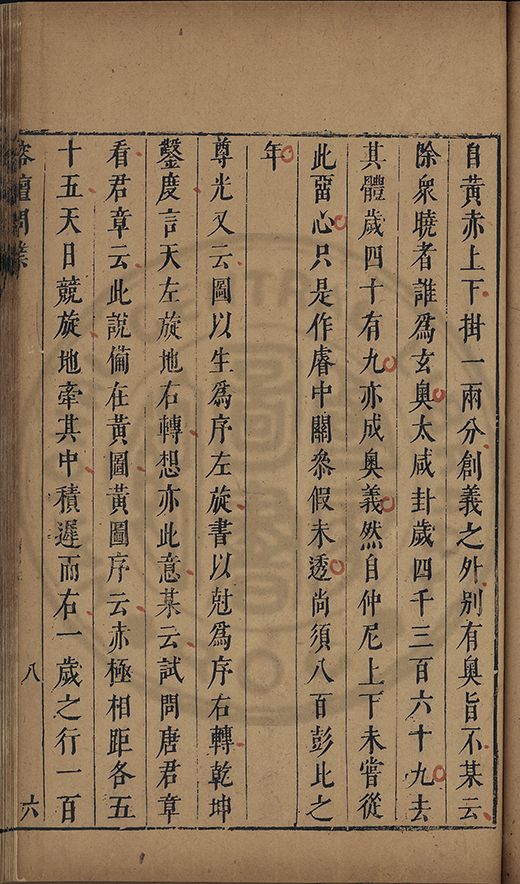 自黃赤上下掛一兩分創義之外別有奧旨不某云
除衆曉者誰爲玄奧太咸卦歲四千三百六十九去
其體歲四十有九亦成奧義然自仲尼上下未嘗從
此畱心只是作睿中關叅假未透尚須八百彭此之
年
尊光又云圖以生爲序左旋書以尅爲序右轉乾坤
鑿度言天左旋地右轉想亦此意某云試問唐君章
看君章云此說俻在黃圖黃圖序云赤極相距各五
十五天日競旋地牽其中積遲而右一歲之行一百
榕壇問業
八
六